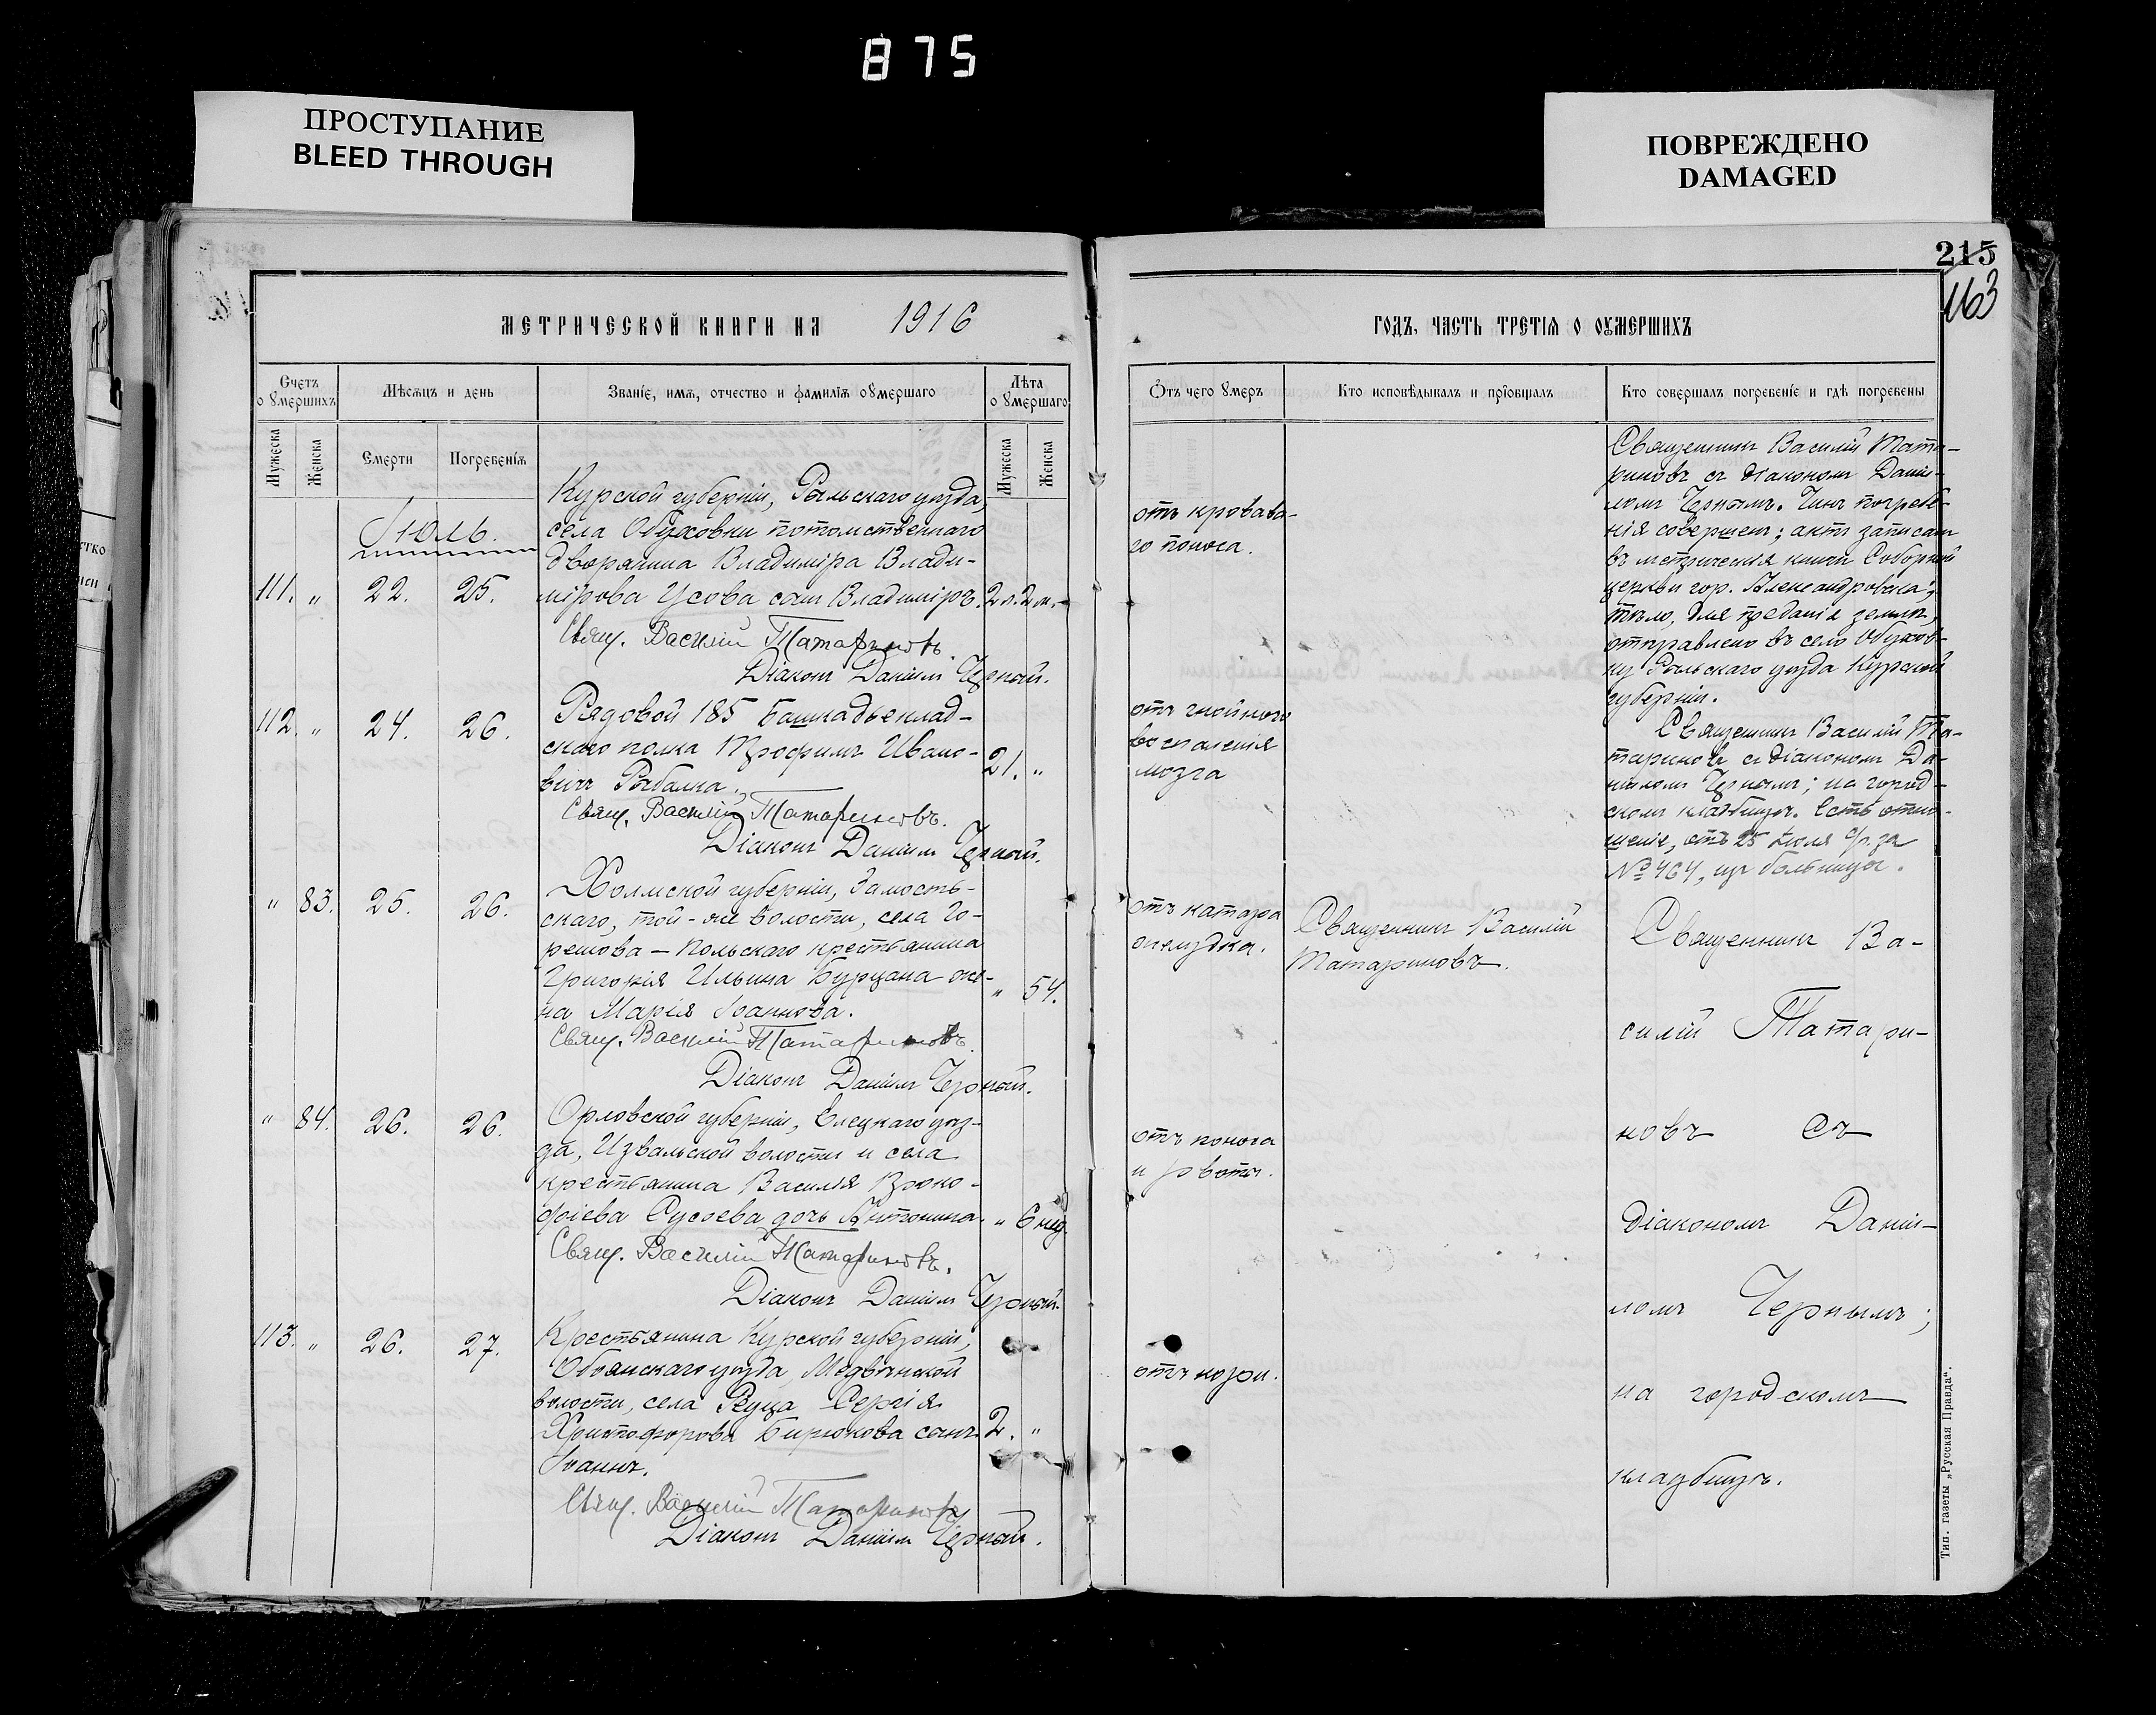 875
ПРОСТУПАНИЕ
BLEED THROUGH
ПОВРЕЖДЕНО
DAMAGED
215
163
МЕТРИЧЕСКОЙ КНИГИ НА 1916
ГОДЪ, ЧАСТЬ ТРЕТІЯ О ОУМЕРШИХЪ
Счетъ о умершихъ
Мѣсяцъ и день
Званіе, имя, отчество и фамилія оумершаго
Лѣта о умершаго
Мужеска
Женска
Смерти
Погребенія
Мужеска
Женска
Отъ чего умеръ
Кто исповѣдывалъ и пріобщалъ
Кто совершалъ погребеніе и гдѣ погребены
Іюль.
Курской губерніи, Рыльскаго уѣзда,
села Обуховки потомственнаго
дворянина Владиміра Влади-
111. „ 22. 25. мірова Усова сынъ Владиміръ. 2 л. 2 м. –
Свящ. Василій Татариновъ.
Діаконъ Даніилъ Черный.
отъ кровава-
го поноса.
Священникъ Василій Тата-
риновъ съ діакономъ Даніи-
ломъ Чернымъ. Чинъ погребе-
нія совершенъ; актъ записанъ
въ метрическія книги Соборной
церкви гор. Александровска;
тѣло, для преданія землѣ,
отправлено въ село Обухов-
ку Рыльскаго уѣзда Курской
губерніи.
112. „ 24. 26. Рядовой 185 Башкадыклад-
скаго полка Трофимъ Ивано- 21. „
вичъ Рыбалка.
Свящ. Василій Татариновъ.
Діаконъ Даніилъ Черный.
отъ гнойнаго
воспаленія
мозга
Священникъ Василій Та-
тариновъ съ діакономъ Да-
ніиломъ Чернымъ; на город-
скомъ кладбищѣ. Есть отно-
шеніе, отъ 25 Іюля с/г. за
№ 464, изъ больницы.
„ 83. 25. 26. Холмской губерніи, Замость-
скаго, той-же волости, села
польскаго крестьянина
Григорія Ильина Бурцана же-
на Марія Іоаннова. „ 54.
Свящ. Василій Татариновъ.
Діаконъ Даніилъ Черный.
отъ катара
желудка.
Священникъ Василій
Татариновъ.
Священникъ Ва-
силій Татари-
новъ съ
діакономъ Даніи-
ломъ Чернымъ;
на городскомъ
кладбищѣ.
„ 84. 26. 26. Орловской губерніи, Елецкаго уѣз-
да, Извальской волости и села
крестьянина Василія
Сусоева дочь Антонина. „ 6 нед.
Свящ. Василій Татариновъ.
Діаконъ Даніилъ Черный.
отъ поноса
и рвоты.
113. „ 26. 27. Крестьянина Курской губерніи,
Обоянскаго уѣзда, Медвѣнской
волости, села Реуца Сергія
Христофорова Бирюкова сынъ 2. „
Іоаннъ.
Свящ. Василій Татариновъ
Діаконъ Даніилъ Черный.
отъ кори.
Тип. газеты „Русская Правда“.